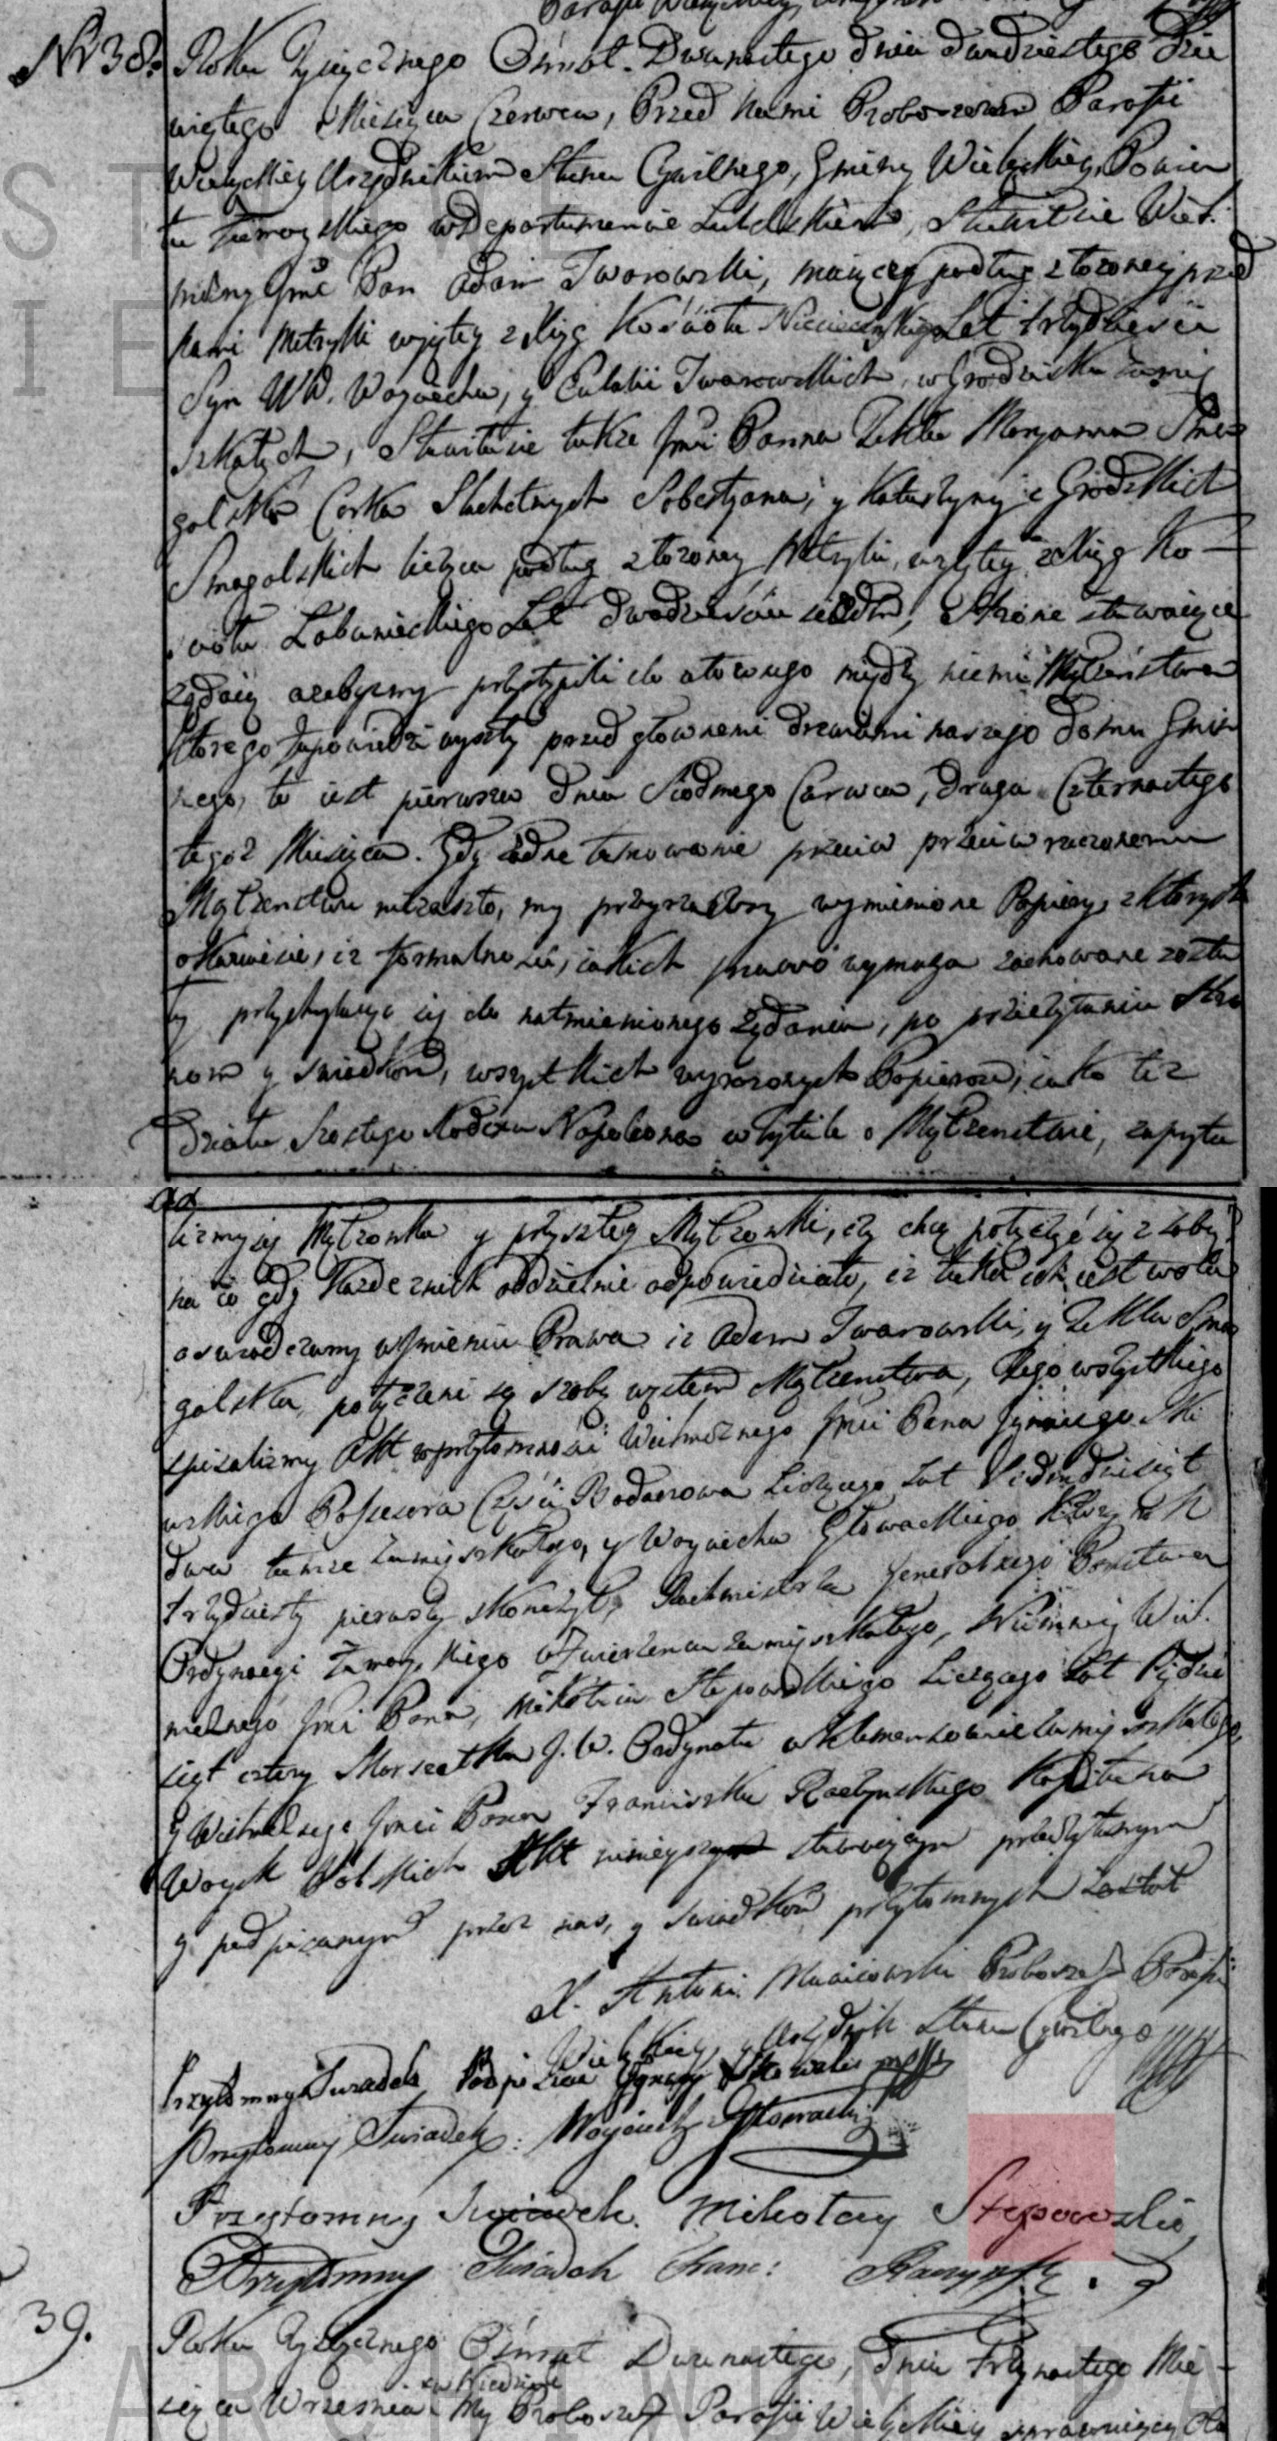 Nr 38. Roku Tysięcznego Ośmset. Dwunastego dnia dwudziestego dzie
wiątego Miesiąca Czerwca, Przed Nami Proboszczem Parafii
Wieląckiey Urzędnikiem Stanu Cywilnego, Gminy Wieląckiey, Powia
tu Zamoyskiego w Departamencie Lubelskiem, Stawił się Wiel.
możny Jmć Pan Adam Iwarowski, maiący podług złożoney przed
nami Metryki wyjętey z Xiąg Kościoła Lat trzydzieści
Syn WW. Woyciecha, y Eulalii Iwarowskich, w Grodzisku zamię
szkałych, Stawiła się także Jmć Panna Tekla Maryanna Sma
golska Corka Slachetnych Sobestyana, y Katarzyny z Grodzkich
Smagolskich licząca podług złożoney Metryki, wyjętey z Xiąg Ko-
ścioła Łabunieckiego Lat dwadzieścia siedm, Strone stawaiące
żądaią azebyśmy przystąpili do  między niemi Małżeństwa
którego zapowiedzi wyszły przed głownemi drzwiami naszego domu Gmin
nego, to iest pierwsza dnia Siodmego Czerwca, druga Czternastego
tegoż Miesiąca. Gdy żadne tamowanie przeciw rzeczonemu
Małżeństwu nie zaszło, my przyrzawszy wymienione Papiery, z których
okazuie się, iż formalności, iakich prawo wymaga zachowane zosta
ły przychylaiąc się do natmienionego żądania, po przeczytaniu Stro
nom y świadkom, wszystkich wyrażonych Papierów, iako też
działu szostego Kodexu Napoleona w tytule o Małżeństwie, zapyta
liśmy się Małżonka y przyszłey Małżonki, czy chcą połączyć się z sobą,
na co gdy każde z nich oddzielnie odpowiedziało, iż taka ich iest wola
oswiadczamy w Imieniu Prawa iż Adam Iwarowski, y Tekla Sma
golska, połączeni są z sobą węzłem Małżeństwa, Czego wszystkiego
spisaliśmy Akt w przytomności Wielmożnego Jmci Pana Ignacego Ski
wskiego Possesora Części Bodaczowa Liczącego Lat
dwa tamże zamięszkałego, y Woyciecha Głowackiego który rok
trzydziesty pierwszy skończył, Rachmistrza Jeneralnego Państwa
Ordynacyi Zamoyskiego w Zwierzencu zamięszkałego, Niemniey Wiel.
możnego Jmci Pana, Mikołaia Stępowskiego Liczącego Lat Pięćdzie
siąt cztery Marszałka J. W. Ordynata w Klemensowie zamięszkałego,
y Wielmożnego Jmci Pana Franciszka Raczynskiego Kapitana
Woysk Polskich Akt ninieyszy stawaiącym przeczytanym
y podpisanym przez nas, y świadków przytomnych został
X. Antoni Proboszcz Parafii
Wieląckiey, y Urzędnik Stanu Cywilnego
Przytomny Swiadek Podpisuie Ignacy
Przytomny Swiadek: Woyciech Głowacki
Przytomny Swiadek. Mikołay Stępowski,
Przytomny Swiadek Franc: Raczynski.
39. Roku Tysięcznego Ośmset Dwunastego, Dnia trzynastego Mie-
w Niedzielę
siąca Wrzesnia My Proboszcz Parafii Wieląckiey sprawuiący Obo